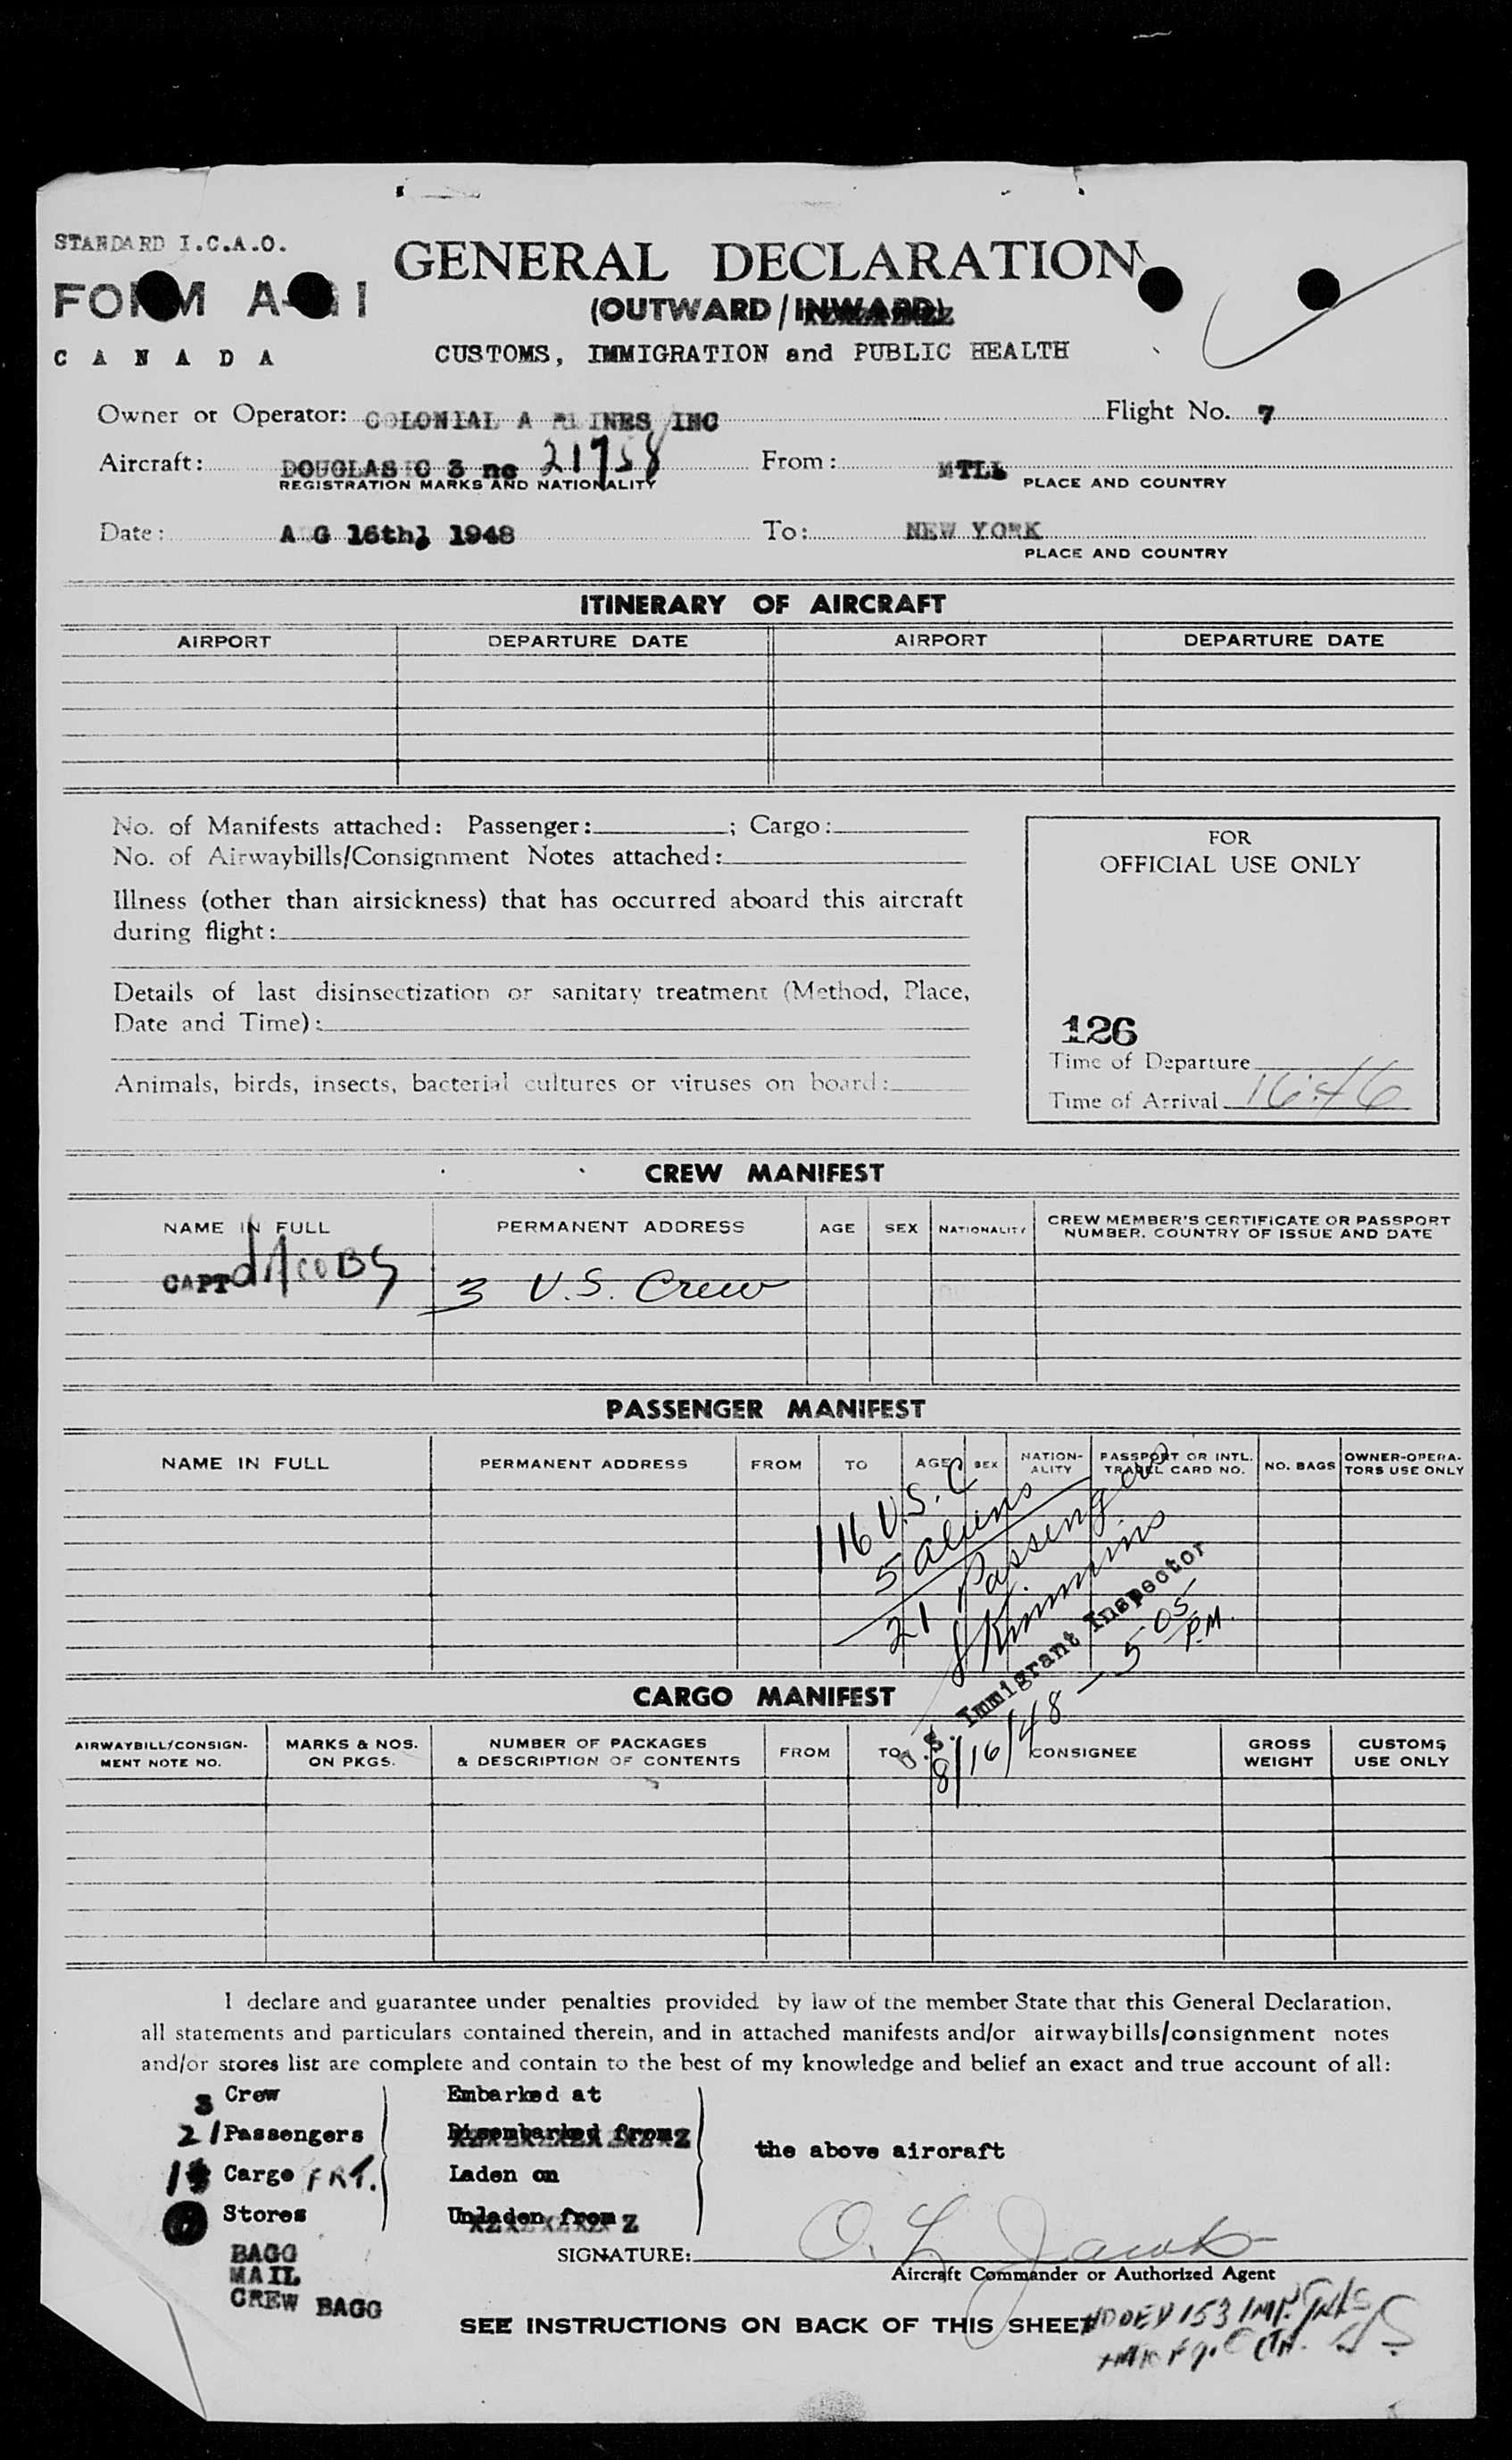 STANDARD I.C.A.O.
GENERAL DECLARATION
FORM A-G 1
(OUTWARD / INWARD)
CANADA
CUSTOMS, IMMIGRATION and PUBLIC HEALTH
Owner or Operator: COLONIAL A RLINES INC Flight No. 7
Aircraft: DOUGLAS C 3 nc 21758 From: MTLL
REGISTRATION MARKS AND NATIONALITY PLACE AND COUNTRY
Date: A G 16th, 1948 To: NEW YORK
PLACE AND COUNTRY
ITINERARY OF AIRCRAFT
AIRPORT DEPARTURE DATE AIRPORT DEPARTURE DATE
No. of Manifests attached: Passenger: ; Cargo:
No. of Airwaybills/Consignment Notes attached:
Illness (other than airsickness) that has occurred aboard this aircraft
during flight:
Details of last disinsectization or sanitary treatment (Method, Place,
Date and Time):
Animals, birds, insects, bacterial cultures or viruses on board:
FOR
OFFICIAL USE ONLY
126
Time of Departure
Time of Arrival 16:46
CREW MANIFEST
NAME IN FULL PERMANENT ADDRESS AGE SEX NATIONALITY CREW MEMBER'S CERTIFICATE OR PASSPORT
NUMBER, COUNTRY OF ISSUE AND DATE
CAPT JACOBS 3 U.S. Crew
PASSENGER MANIFEST
NAME IN FULL PERMANENT ADDRESS FROM TO AGE SEX NATION-
ALITY PASSPORT OR INTL.
TRAVEL CARD NO. NO. BAGS OWNER-OPERA-
TORS USE ONLY
16 U.S.C
5 aliens
21 Passengers
U.S. Immigrant Inspector
8/16/48 - 5 05 P.M.
CARGO MANIFEST
AIRWAYBILL/CONSIGN-
MENT NOTE NO. MARKS & NOS.
ON PKGS. NUMBER OF PACKAGES
& DESCRIPTION OF CONTENTS FROM TO CONSIGNEE GROSS
WEIGHT CUSTOMS
USE ONLY
I declare and guarantee under penalties provided by law of the member State that this General Declaration,
all statements and particulars contained therein, and in attached manifests and/or airwaybills/consignment notes
and/or stores list are complete and contain to the best of my knowledge and belief an exact and true account of all:
3 Crew Embarked at
21 Passengers Disembarked from
the above aircraft
Cargo FRT. Laden on
Stores Unladen from
BAGG
MAIL
CREW BAGG
SIGNATURE: O. L. Jacobs
Aircraft Commander or Authorized Agent
SEE INSTRUCTIONS ON BACK OF THIS SHEET